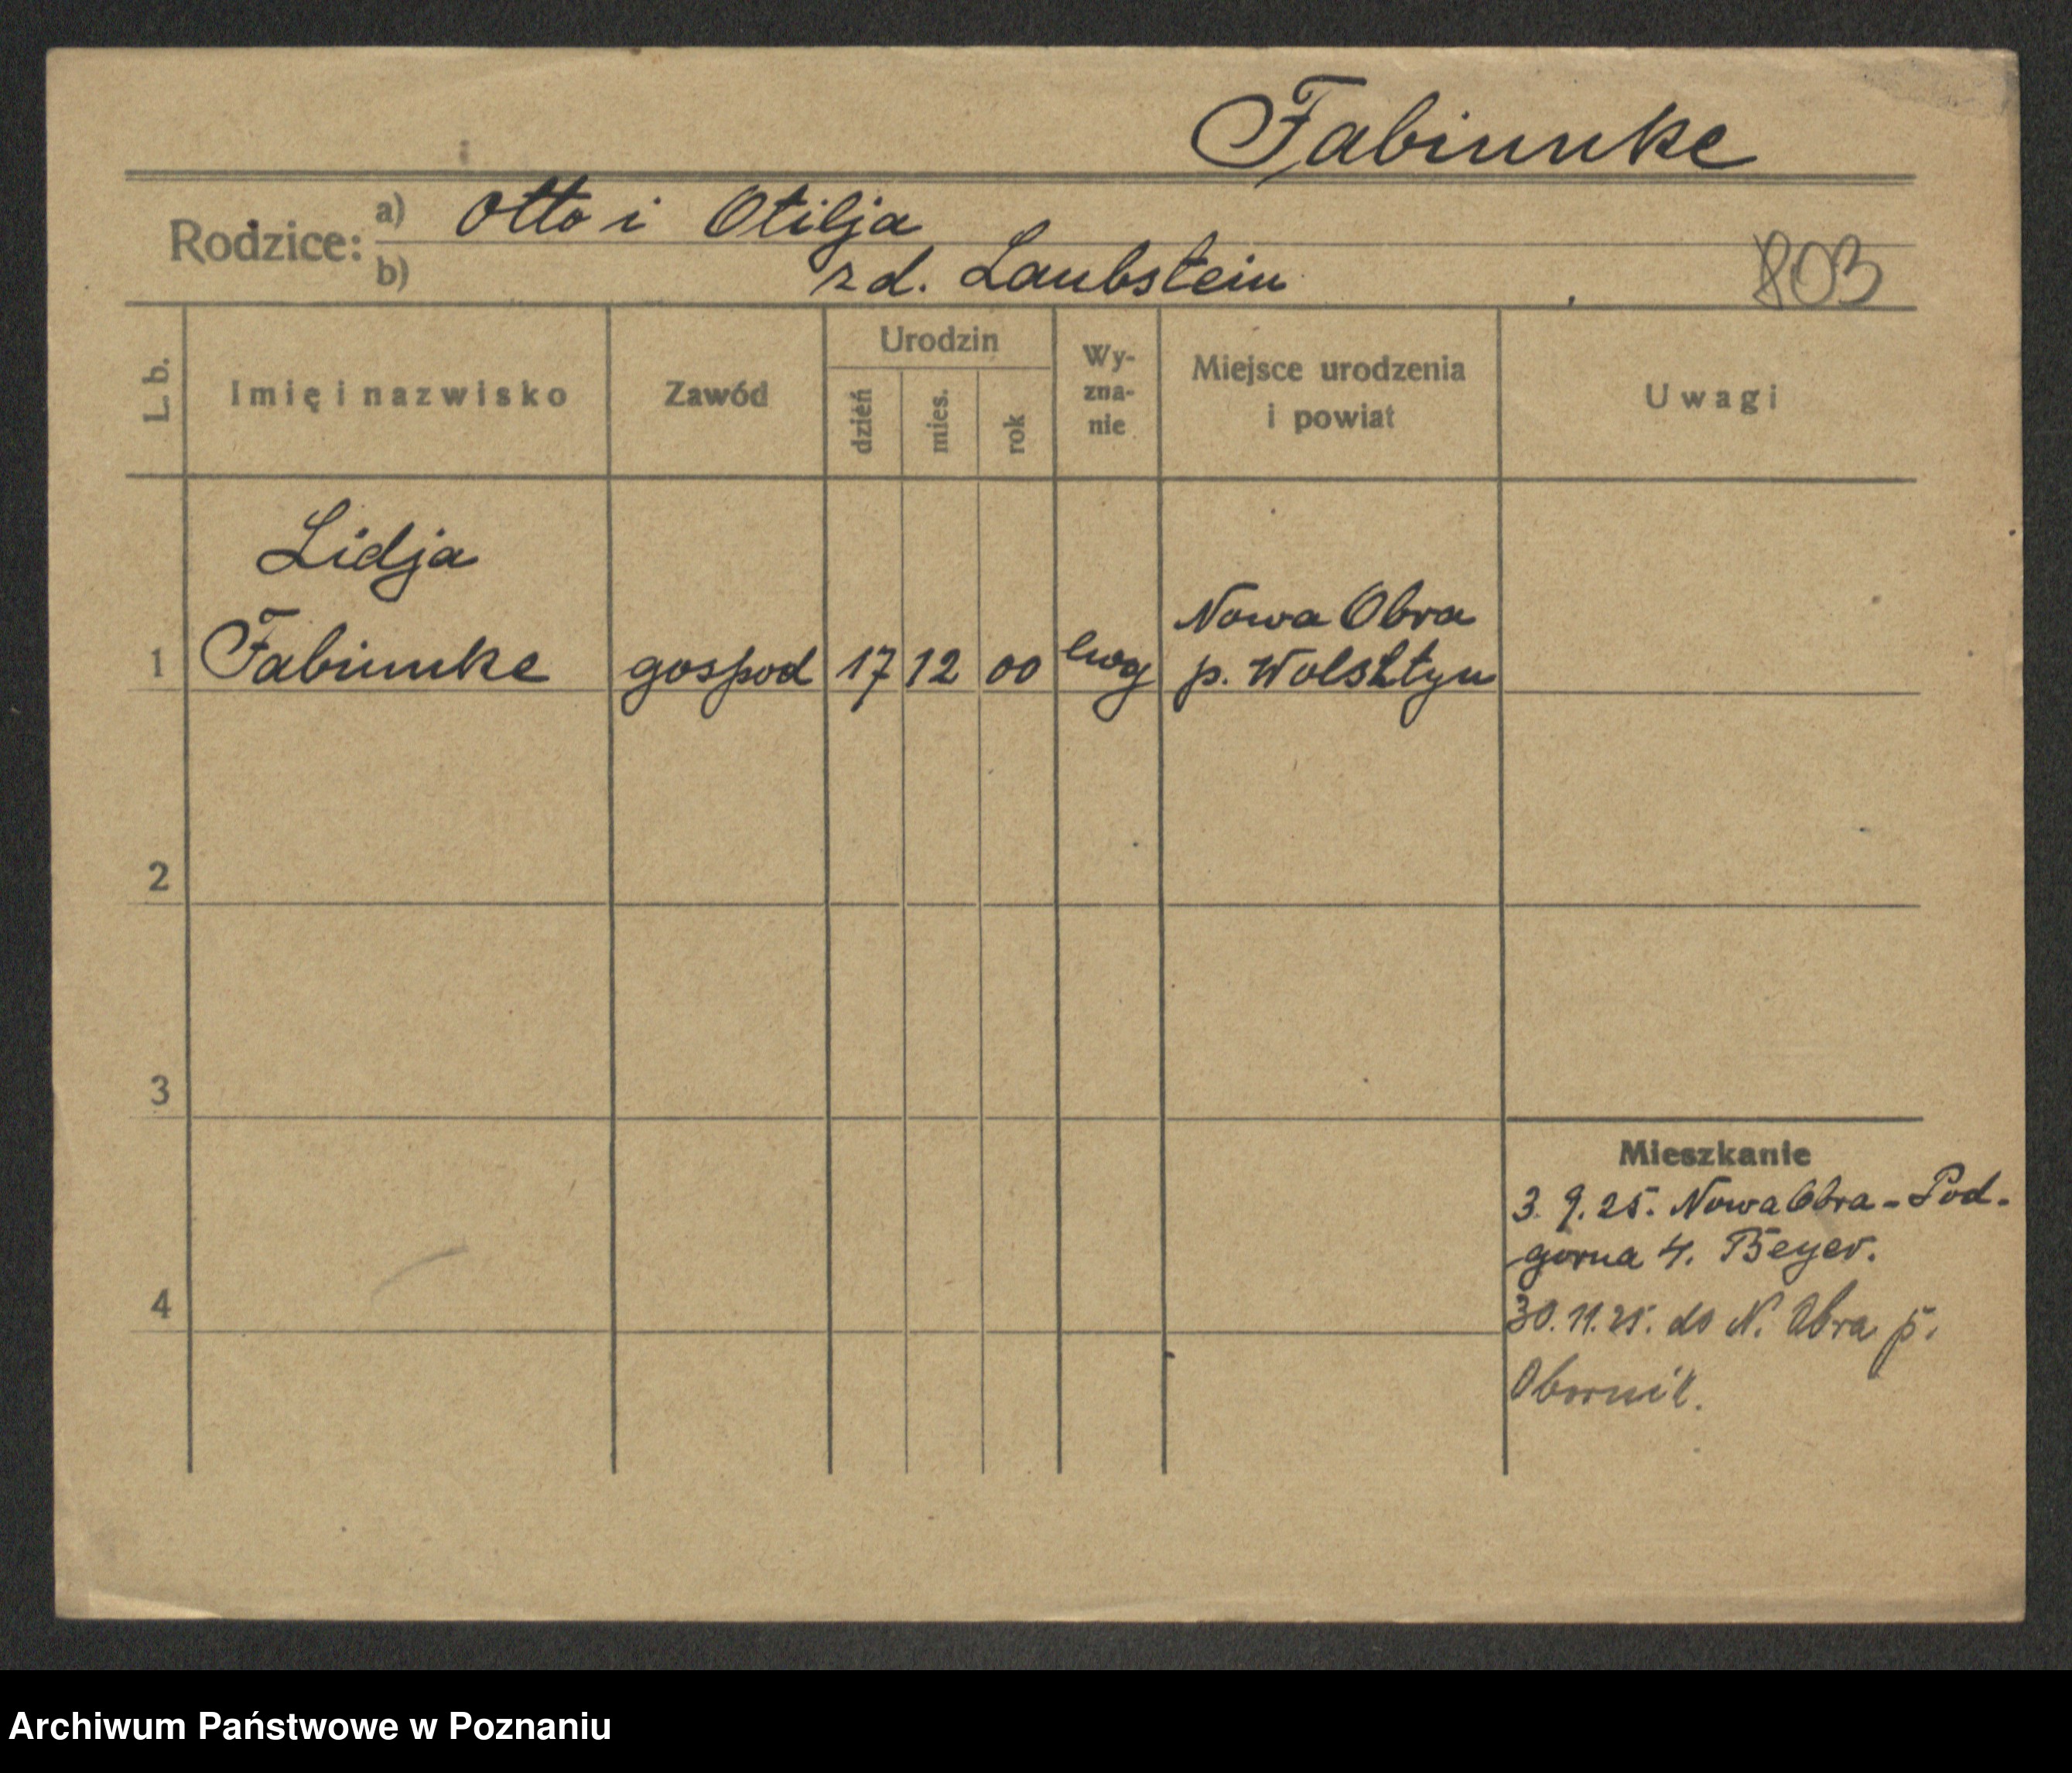 Fabiunke
Rodzice: a) Otto i Otilja
b) zd. Laubstein
803
L. b.
Imię i nazwisko
Zawód
Urodzin
dzień
mies.
rok
Wy-
zna-
nie
Miejsce urodzenia
i powiat
Uwagi
Lidja
1 Fabiunke gospod 17 12 00 ewg Nowa Obra
p. Wolsztyn
2
3
4
Mieszkanie
3. 9. 25. Nowa Obra - Pod-
gorna 4. Beyer.
30. 11. 25. do N. Obra p.
Obornik.
Archiwum Państwowe w Poznaniu